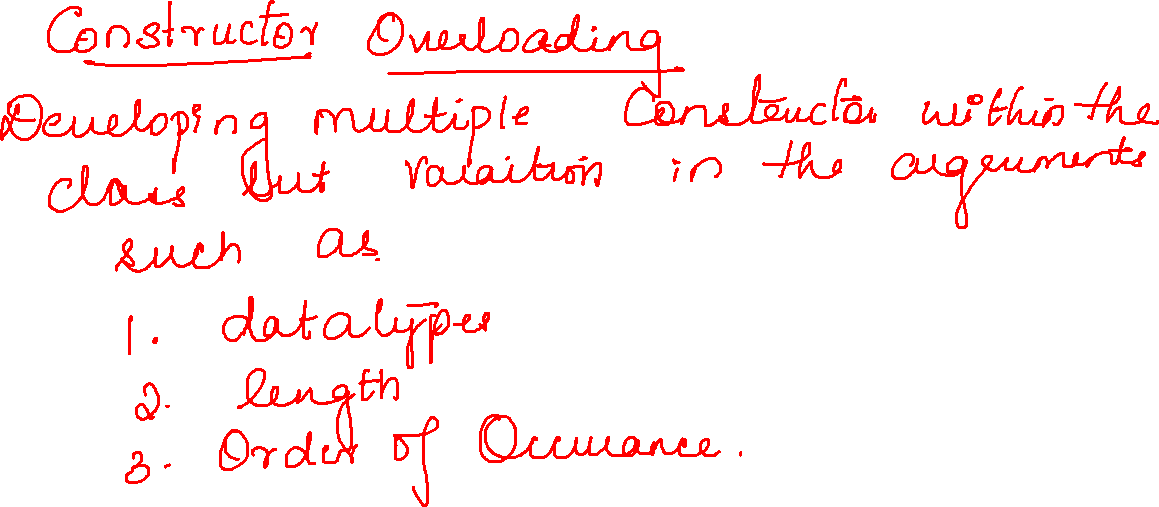 Constructor Overloading
Developing multiple Constructor within the
class but varaition in the arguments
such as
1. datatypes
2. length
3. Order of Occurance.